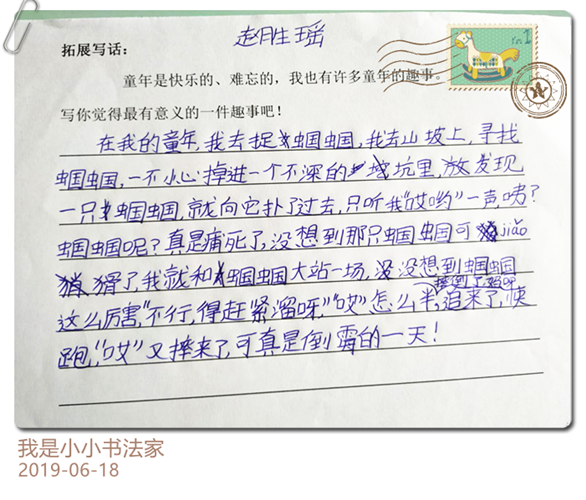 赵胜瑶
拓展写话:
童年是快乐的、难忘的,我也有许多童年的趣事。
写你觉得最有意义的一件趣事吧!
在我的童年,我去捉蝈蝈,我去山坡上,寻找
蝈蝈,一不小心掉进一个不深的坑里,发现
一只蝈蝈,就向它扑了过去,只听我“哎哟”一声咦?
蝈蝈呢?真是痛死了,没想到那只蝈蝈可jiǎo
猾了,我就和蝈蝈大站一场,没想到蝈蝈
这么厉害“不行,得赶紧溜呀,”“哎”怎么半,追来了,快
跑,“哎”又摔来了,可真是倒霉的一天!
我是小小书法家
2019-06-18